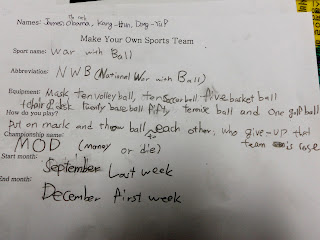 Names: James the only Obama, Kang-Hun, Dong-Yup
Make Your Own Sports Team
Sport name: War with Ball
Abbreviation: NWB (National War with Ball)
Equipment: Mask ten volley ball, ten Soccer ball five basket ball
1 chair 2 desk baseball fifty tennis ball and One golf ball
How do you play?
Put on mark and throw ball to each other, who give-up that
team is lose
Championship name:
MOD (money or die)
Start month:
September Last week
End month:
December first week